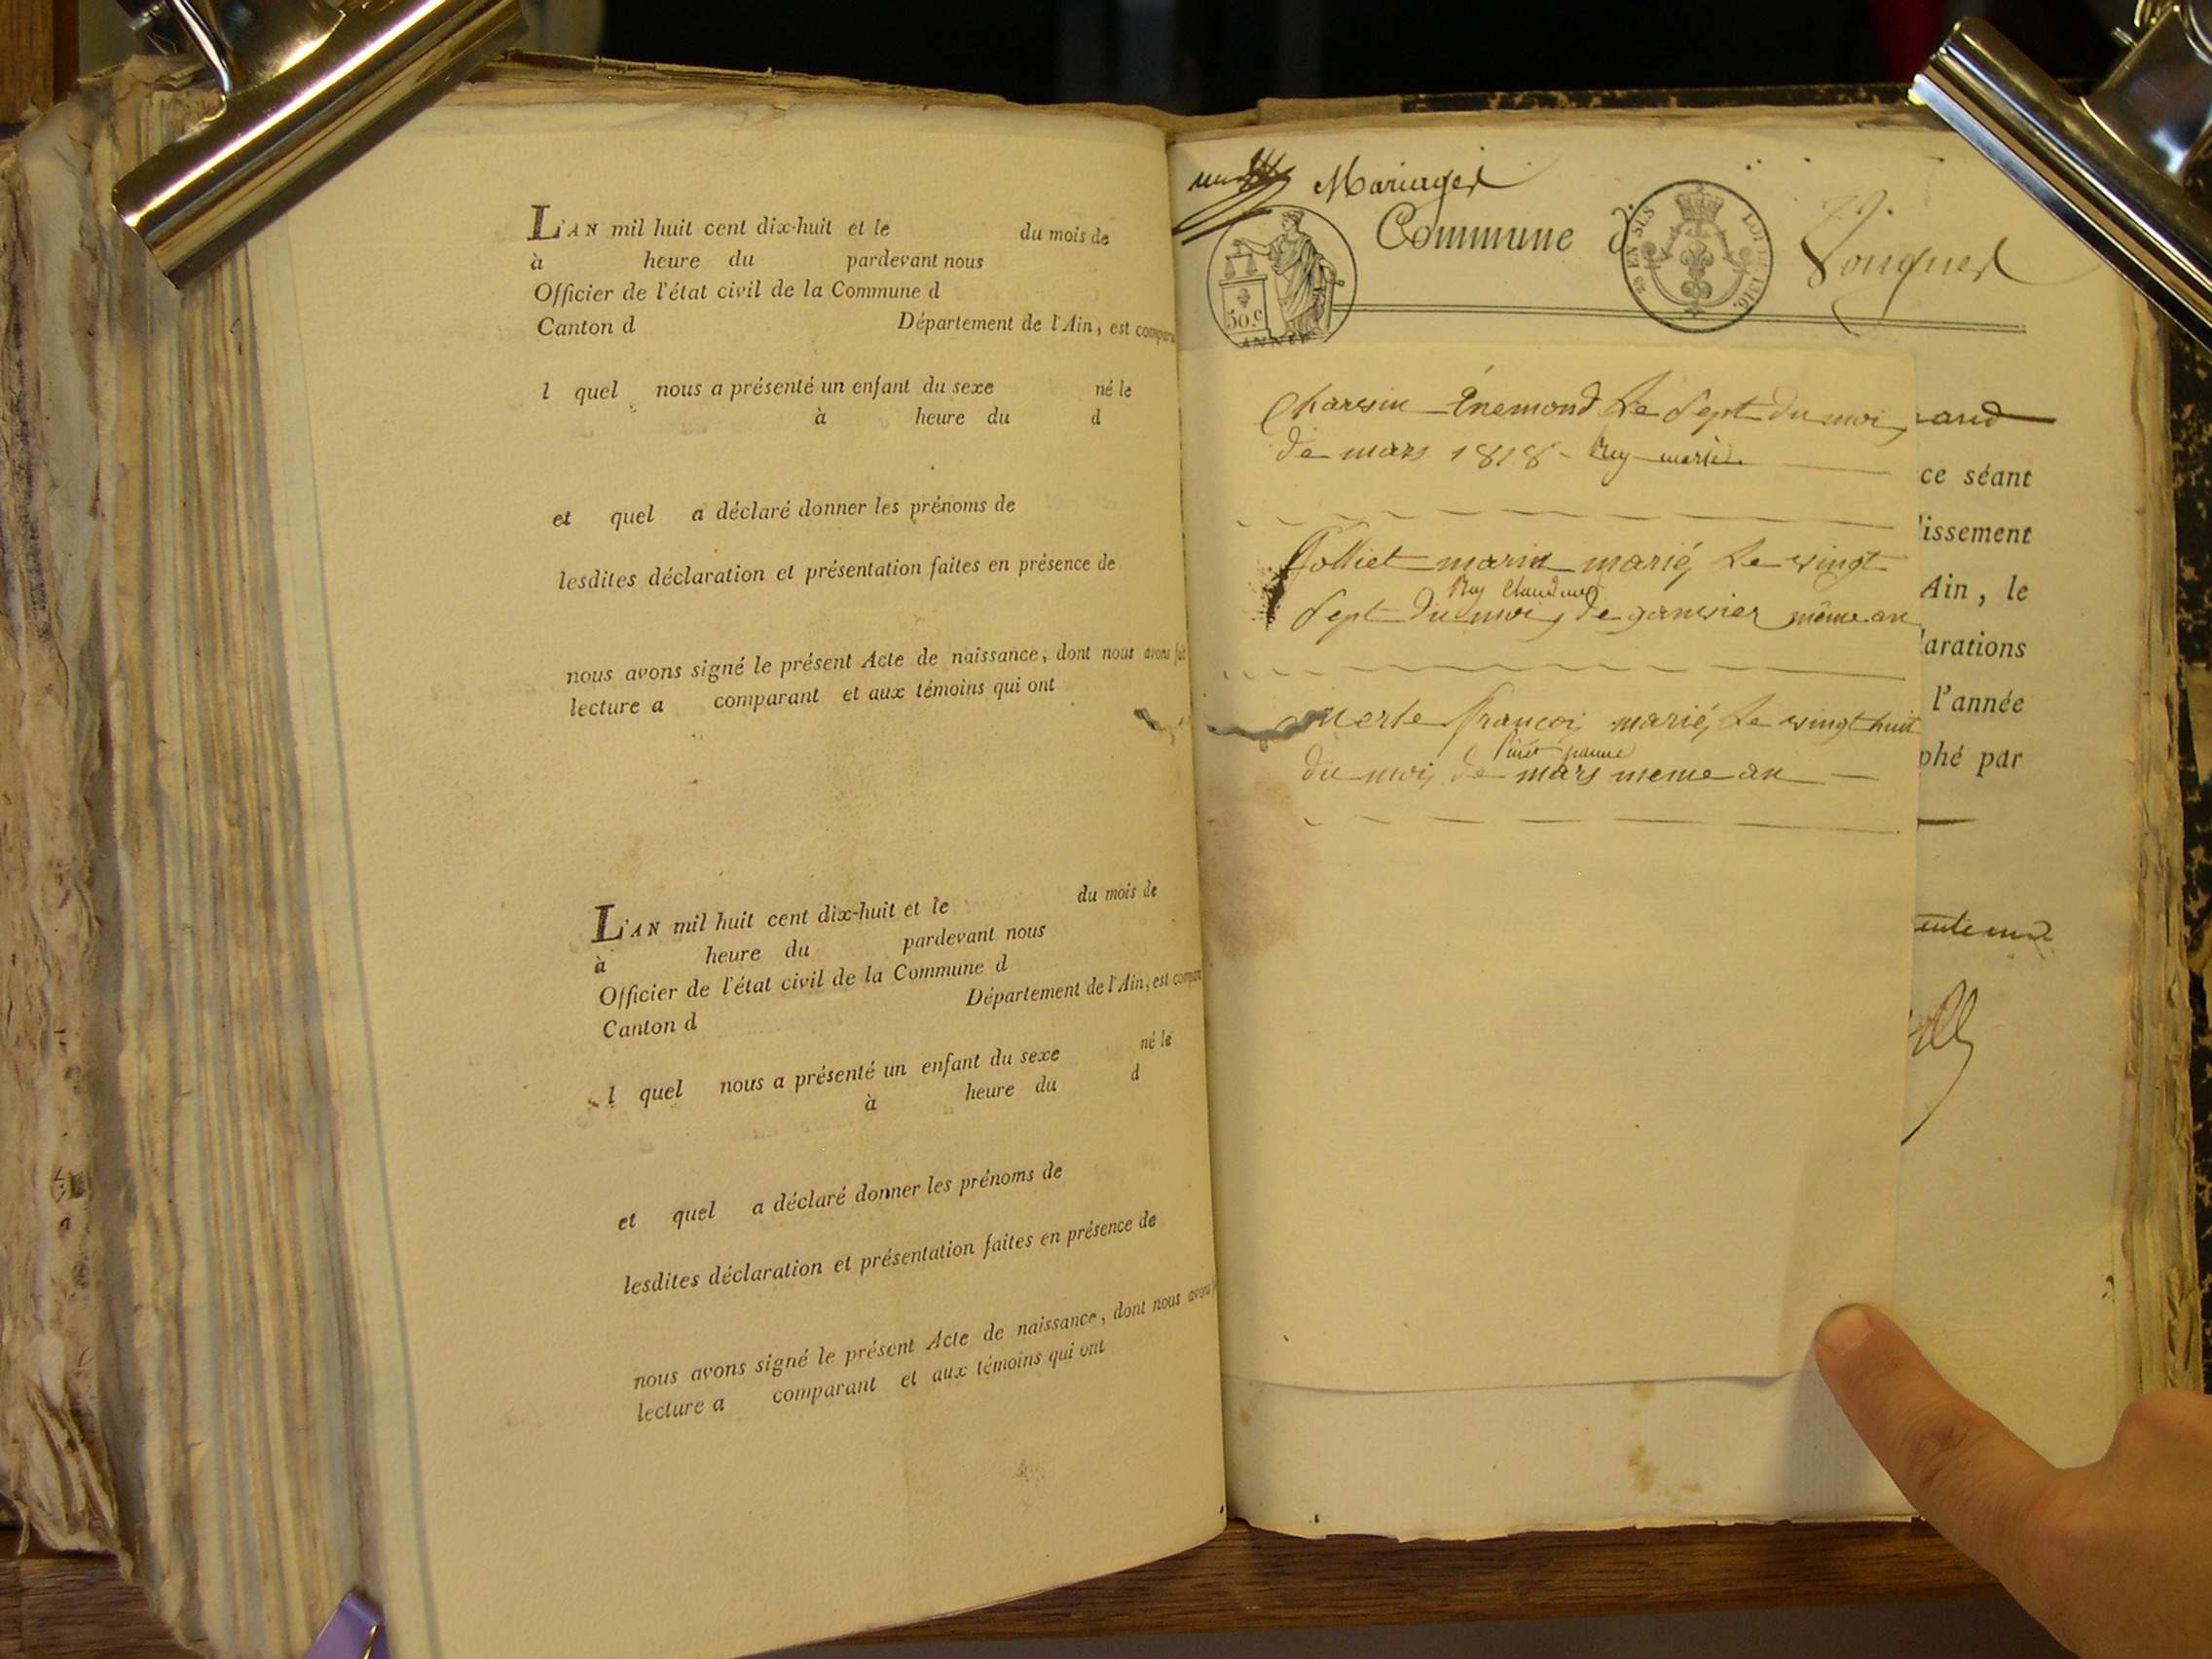 L'AN mil huit cent dix-huit et le du mois de
à heure du pardevant nous
Officier de l'état civil de la Commune d
Canton d Département de l'Ain, est compar
l quel nous a présenté un enfant du sexe né le
à heure du d
et quel a déclaré donner les prénoms de
lesdites déclaration et présentation faites en présence de
nous avons signé le présent Acte de naissance, dont nous avons fait
lecture a comparant et aux témoins qui ont
L'AN mil huit cent dix-huit et le du mois de
à heure du pardevant nous
Officier de l'état civil de la Commune d
Canton d Département de l'Ain, est compar
l quel nous a présenté un enfant du sexe né le
à heure du d
et quel a déclaré donner les prénoms de
lesdites déclaration et présentation faites en présence de
nous avons signé le présent Acte de naissance, dont nous avons
lecture a comparant et aux témoins qui ont
Mariages
Commune d.
50.c
EN SUS LOI DE 1816.
Enemond Le Sept du mois
de mars 1818 - Rey marie
and
ce séant
Jolliet marin marié Le vingt
lissement
Rey Claudine
Sept du mois de janvier même an
Ain, le
larations
merle françois marié Le vingt huit
l'année
du mois de mars meme an
phé par